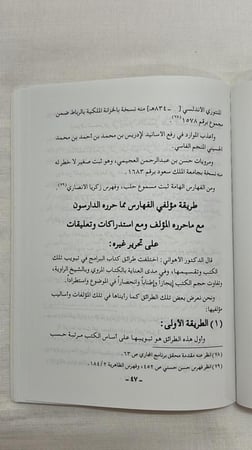 المنتوري الاندلسي [ ــ ٨٣٤هـ] منه نسخة بالخزانة الملكية بالرباط ضمن
مجموع برقم ١٥٧٨ (٢٨).
واعذب الموارد في رفع الاسانيد لإدريس بن محمد بن احمد بن محمد
الحسيني المنجم الفاسي.
ومرويات حسن بن عبدالرحمن العجيمي، وهو ثبت صغير لا خطر له
منه نسخة بجامعة الملك سعود برقم ١٦٨٣.
ومن الفهارس الهامة ثبت مسموع حلب، وفهرس زكريا الانصاري (٢٩).
طريقة مؤلفي الفهارس مما حرره الدارسون
مع ماحرره المؤلف ومع استدراكات وتعليقات
على تحرير غيره:
قال الدكتور الاهواني: اختلفت طرائق كتاب البرامج في تبويب تلك
الكتب وتقسيمها، وفي مدى العناية بالكتاب المروي وبالشيخ الراوية،
وتفاوت حجم الكتب إيجازاً وإطناباً وانحصاراً في الموضوع واستطراداً.
ونحن نعرض بعض تلك الطرائق كما رأيناها في تلك المؤلفات وأساليب
مؤلفيها:
(١) الطريقة الأولى:
وأول هذه الطرائق هو تبويبها على أساس الكتب مرتبة حسب
(٢٨) انظر عنه مقدمة محقق برنامج المجاري ص ٦٣.
(٢٩) انظر فهرس حسن حسني ص ٤٥٢، وفهرس الظاهرية ١٨٤/٢.
ــ ٤٧ ــ